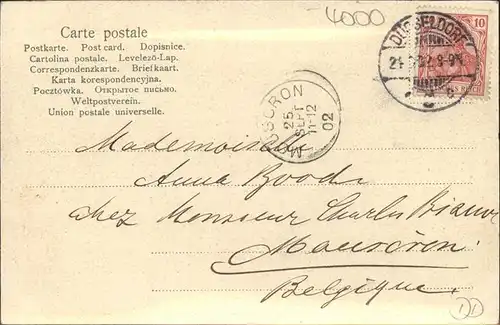 4000
Carte postale
Postkarte. Post card. Dopisnice.
Cartolina postale. Levelező-Lap.
Correspondenzkarte. Briefkaart.
Karta korespondencyjna.
Pocztówka. Открытое письмо.
Weltpostverein.
Union postale universelle.
10
DÜSSELDORF
MOUSCRON
25
SEPT
11-12
02
Mademoiselle
Anna
chez Monsieur Charles
Mouscron
Belgique.